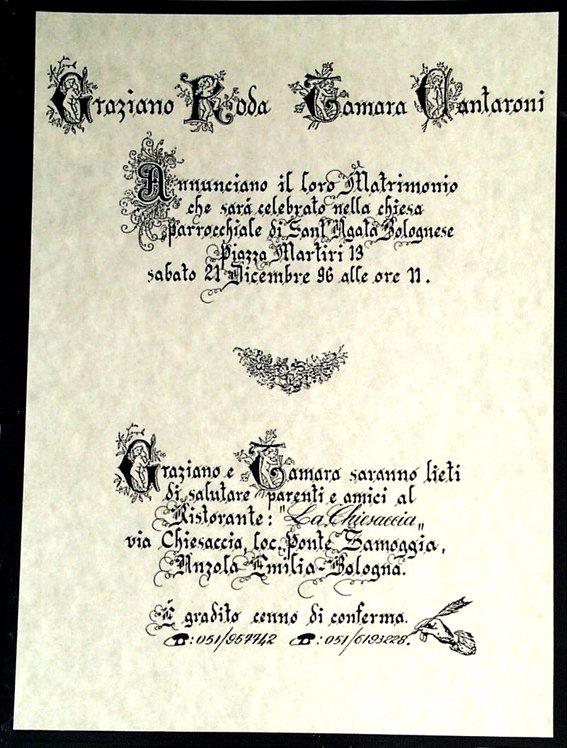 Graziano Roda Tamara Cantaroni
Annunciano il loro Matrimonio
che sará celebrato nella chiesa
parrocchiale di Sant'Agata Bolognese
Piazza Martiri 13
sabato 21 Dicembre 96 alle ore 11.
Graziano e Tamara saranno lieti
di salutare parenti e amici al
Ristorante: "La Chiesaccia"
via Chiesaccia, loc. Ponte Samoggia,
Anzola Emilia-Bologna.
É gradito cenno di conferma.
☎:051/957742 ☎:051/6193228.